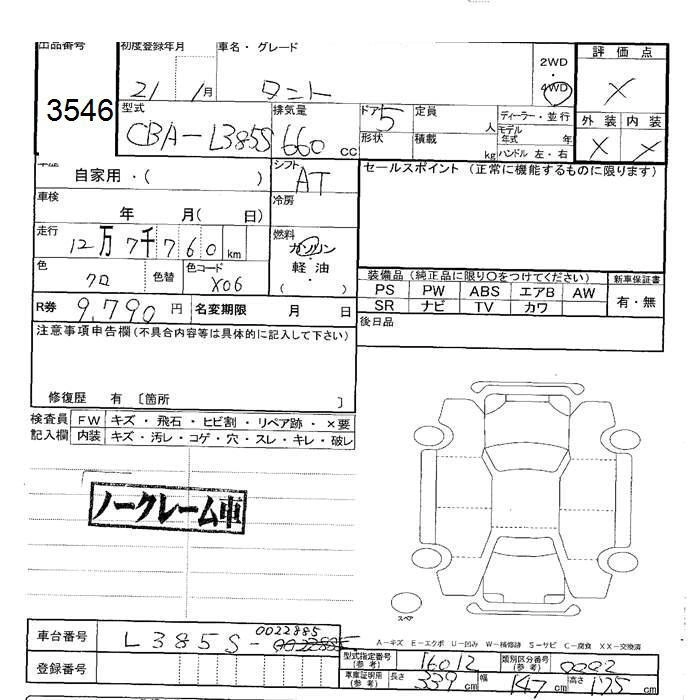 出品番号 初度登録年月 車名・グレード 2WD 評価点
3546 21 1月 タント 4WD X
型式 排気量 ドア 定員 ディーラー・並行 外装 内装
CBA-L385S 660cc 5 人 モデル年式 年 X X
形状 積載 kg ハンドル 左・右
車歴 自家用・( ) シフト AT セールスポイント (正常に機能するものに限ります)
車検 年 月( 日) 冷房
走行 12万7千760km 燃料 ガソリン
色 クロ 色替 色コード X06 軽油・( )
装備品 (純正品に限り○をつけてください) 新車保証書
PS PW ABS エアB AW 有・無
SR ナビ TV カワ
R券 9,790円 名変期限 月 日 後日品
注意事項申告欄 (不具合内容等は具体的に記入して下さい)
修復歴 有 〔箇所 〕
検査員 FW キズ・飛石・ヒビ割・リペア跡・×要
記入欄 内装 キズ・汚レ・コゲ・穴・スレ・キレ・破レ
ノークレーム車
スペア
A-キズ E-エクボ U-凹み W-補修跡 S-サビ C-腐食 XX-交換済
0022885
車台番号 L385S-0022885
登録番号 型式指定番号(参考) 16012 類別区分番号(参考) 0002
車庫証明用(参考) 長さ 339cm 幅 147cm 高さ 175cm